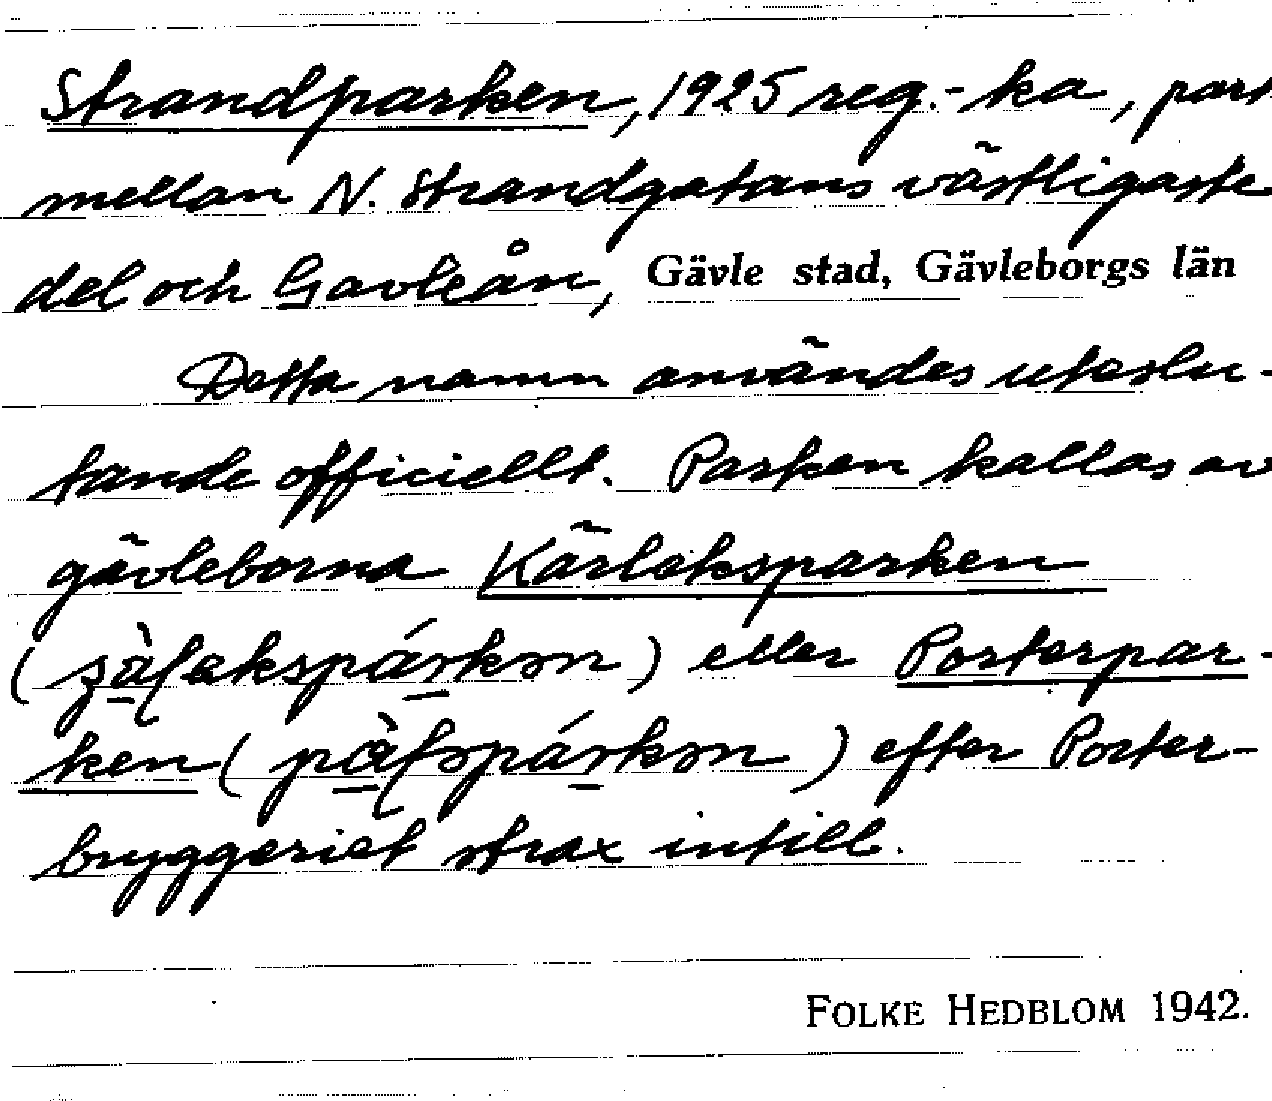 Strandparken, 1925 reg.-ka, park
mellan N. Strandgatans västligaste
del och Gavleån, Gävle stad, Gävleborgs län
Detta namn användes uteslu-
tande officiellt. Parken kallas av
gävleborna Kärleksparken
( ) eller Porterpar-
ken ( ) efter Porter-
bryggeriet strax intill.
FOLKE HEDBLOM 1942.